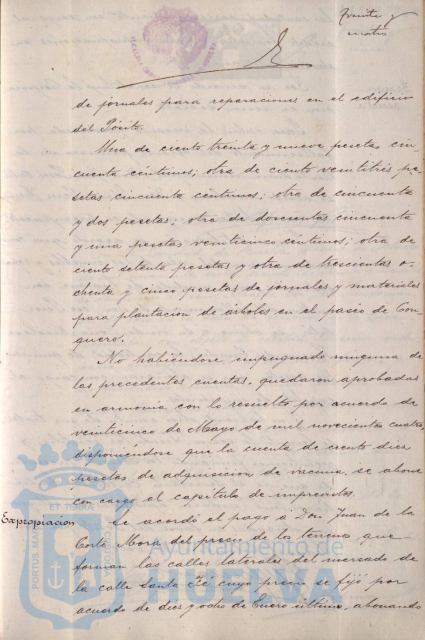 Treinta y
cuatro
de jornales para reparaciones en el edificio
del Pósito.
Una de ciento treinta y nueve pesetas cin-
cuenta céntimos; otra de ciento veintitrés pe-
setas cincuenta céntimos; otra de cincuenta
y dos pesetas; otra de doscientas cincuenta
y una pesetas veinticinco céntimos; otra de
ciento setenta pesetas y otra de trescientas o-
chenta y cinco pesetas de jornales y materiales
para plantacion de árboles en el paseo de Con-
quero.
No habiéndose impugnado ninguna de
las precedentes cuentas, quedaron aprobadas
en armonia con lo resuelto por acuerdo de
veinticinco de Mayo de mil novecientos cuatro,
disponiéndose que la cuenta de ciento diez
pesetas de adquisicion de vacuna, se abone
con cargo al capítulo de imprevistos.
Expropiacion
Se acordó el pago á Don Juan de la
Corte Mora del precio de los terrenos que
forman las calles laterales del mercado de
la calle Santa Fé cuyo precio se fijó por
acuerdo de diez y ocho de Enero último, abonando
PORTUS MARIS
ET TERRAE
Ayuntamiento de
HUELVA